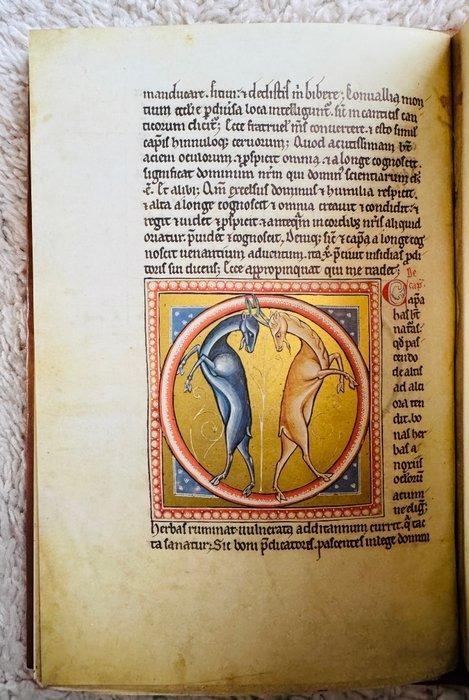 manducare. sitiui: ⁊ dedistis m̄ bibere; Conuallia mon
tium eccl'ie ꝑ diuisa loca intelligunt̄. sic̄ in canticis can
ticorum dicit̄; Ecce fratruel' m̄s conuertere. ⁊ esto simil'
capris hinnuloq; ceruorum; Quod acutissimam hn̄t
aciem oculorum. ⁊ ꝓspicit omnia. ⁊ a longe cognoscit.
significat dominum nr̄m qui dominꝰ scientiarum d's
ē. Et alibi; Qm̄ excelsus dominus ⁊ humilia respicit.
⁊ alta a longe cognoscit ⁊ omnia creauit ⁊ condidit. ⁊
regit ⁊ uidet ⁊ ꝓspicit ⁊ anteq̄m in cordibꝫ nr̄is aliquid
oriatur. p̄uidet ⁊ cognoscit. Deniq; sic̄ ⁊ cap̄a a longe cog
noscit uenantium aduentum. ita xp̄c p̄sciuit insidias ꝓdi
toris sui dicens; Ecce appropinquat qui me tradet;
De
cap̄.
Cap̄a
has hn̄t
natās.
qd pas
cendo
de altis
ad alti
ora ten
dit. bo
nas her
bas a
noxiis
oculorū
acum
ne eliḡ;
herbas ruminat uulnerata ad ditannum currit. q̄ tac
ta sanatur; Sic boni p̄dicatores. pascentes in lege domini